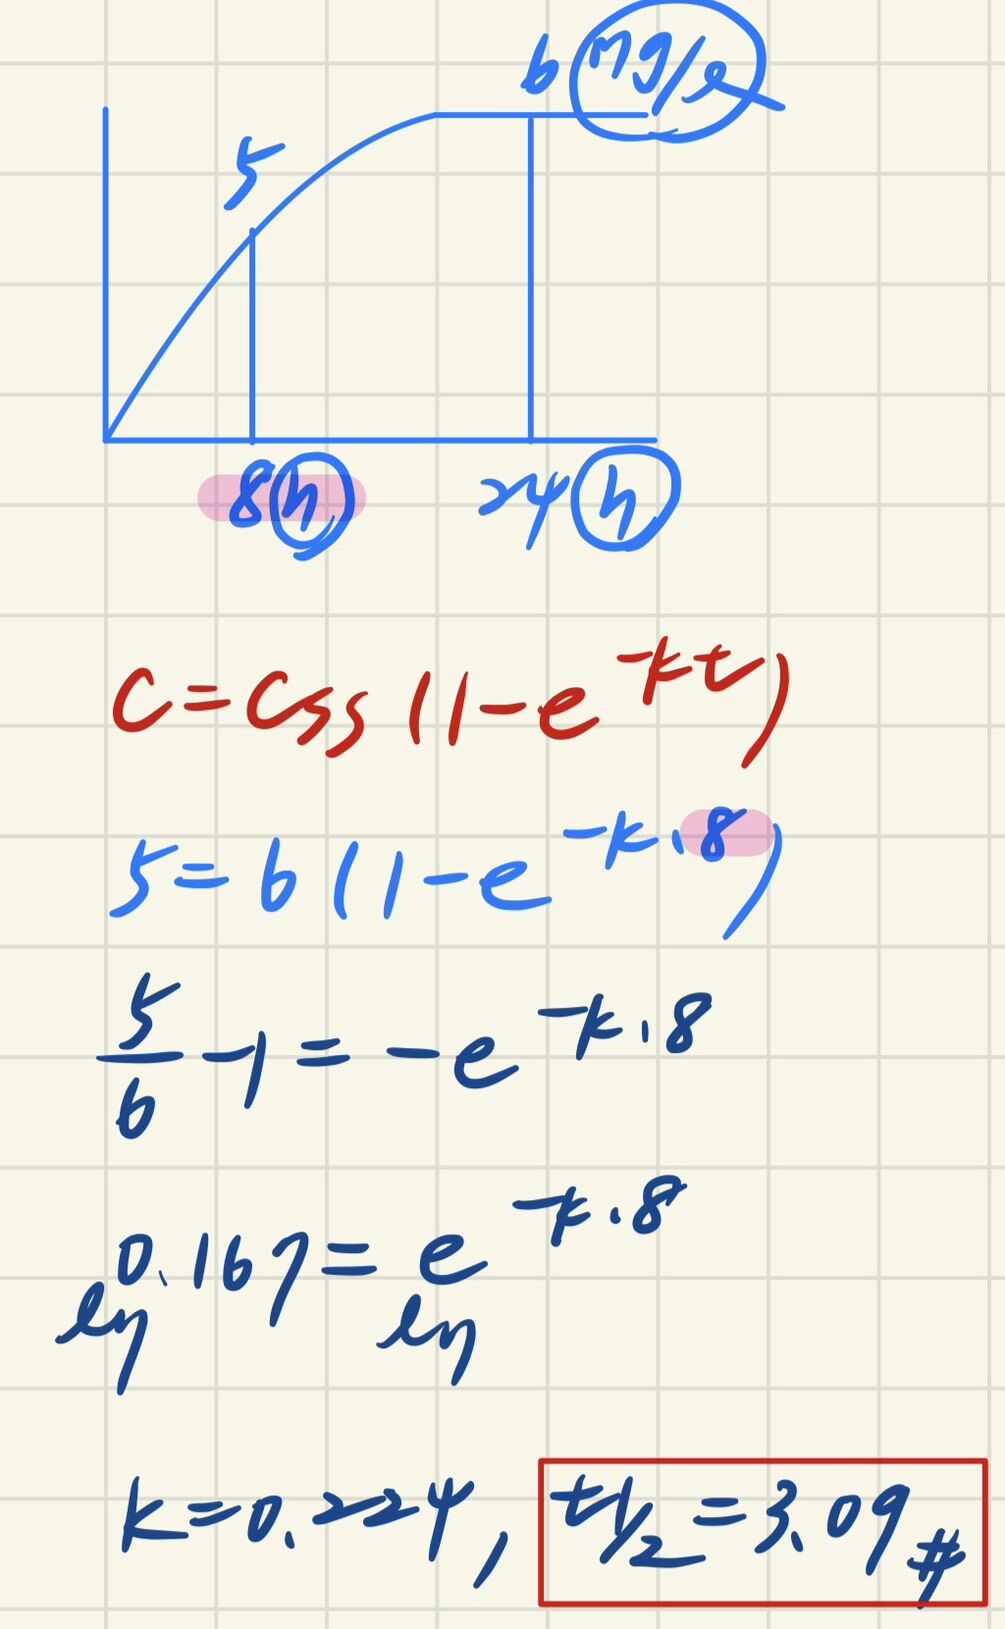 6 mg/l
5
8h 24h
C = Css (1 - e^-kt)
5 = 6 (1 - e^-k·8)
5/6 - 1 = - e^-k·8
0.167 = e^-k·8
ln ln
k = 0.224, t1/2 = 3.09 #